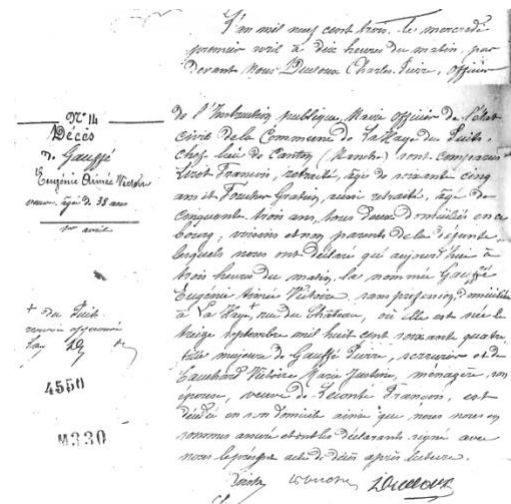 L'an mil neuf cent trois, le mercredi
premier avril à dix heures du matin, par
devant Nous Ducloux Charles Pierre, officier
N° 14
Décès
de Gauffé
Eugénie Aimée Victoire
veuve, âgée de 38 ans
1er avril
de l'Instruction publique, Maire officier de l'état
civil de la Commune de La Haye du Puits,
chef lieu de Canton (Manche) sont comparus
François, retraité, âgé de soixante cinq
ans et Gratien, aussi retraité, âgé de
cinquante trois ans, tous deux domiciliés en ce
bourg, voisins et non parents de la défunte,
lesquels nous ont déclaré que aujourd'hui à
trois heures du matin, la nommée Gauffé
Eugénie Aimée Victoire, sans profession, domiciliée
à La Haye, rue du Château, où elle est née le
treize septembre mil huit cent soixante quatre
fille majeure de Gauffé Pierre, serrurier et de
Victoire Marie Justine, ménagère, son
épouse, veuve de Lecomte François, est
décédée en son domicile ainsi que nous nous en
sommes assuré et ont les déclarants signé avec
nous le présent acte de décès après lecture.
+ du Puits
renvoi approuvé
4550
M330
Ducloux